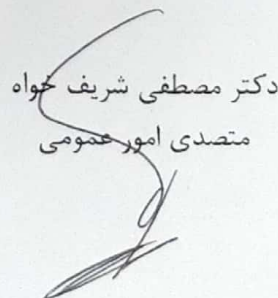 دکتر مصطفی شریف خواه
متصدی امور عمومی